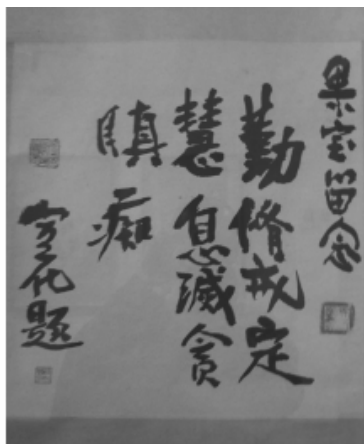 果留念
勤脩戒定
慧息滅貪
瞋痴
宣化題